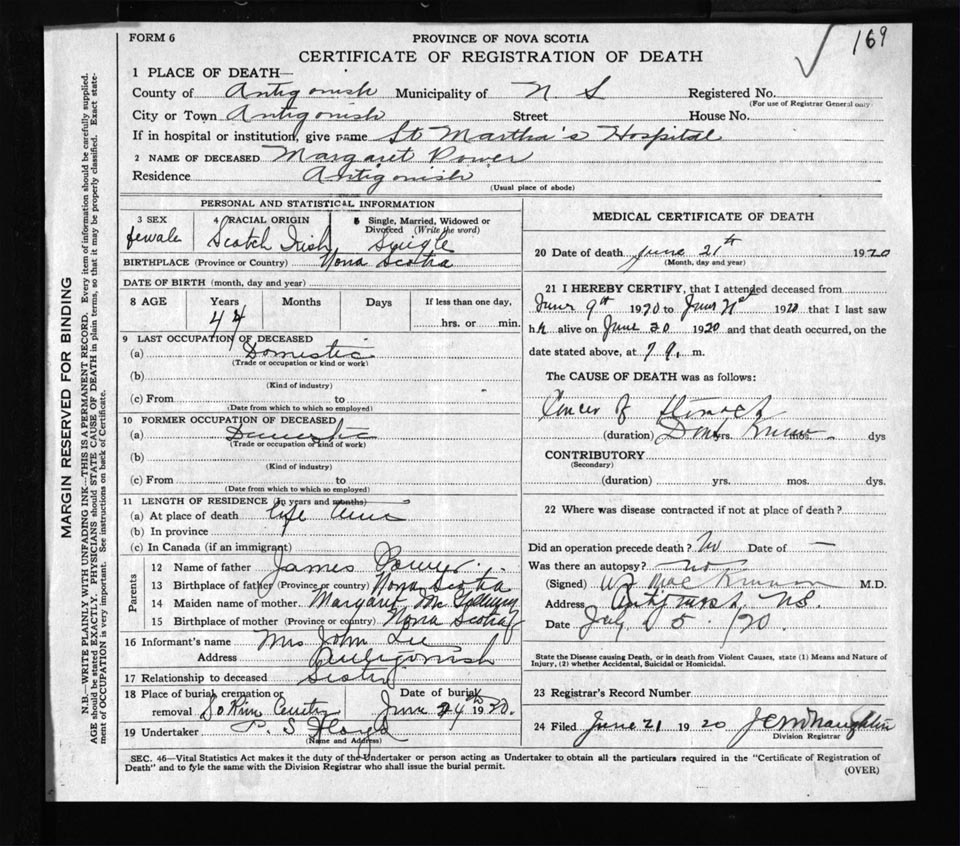 169
FORM 6
PROVINCE OF NOVA SCOTIA
CERTIFICATE OF REGISTRATION OF DEATH
1 PLACE OF DEATH—
County of Antigonish Municipality of N S Registered No.
(For use of Registrar General only)
City or Town Antigonish Street House No.
If in hospital or institution, give name St Martha's Hospital
2 NAME OF DECEASED Margaret Power
Residence Antigonish
(Usual place of abode)
PERSONAL AND STATISTICAL INFORMATION
3 SEX 4 RACIAL ORIGIN 5 Single, Married, Widowed or Divorced (Write the word)
female Scotch Irish Single
BIRTHPLACE (Province or Country) Nova Scotia
DATE OF BIRTH (month, day and year)
8 AGE Years Months Days If less than one day,
44 hrs. or min.
9 LAST OCCUPATION OF DECEASED
(a) Domestic
(Trade or occupation or kind or work)
(b)
(Kind of industry)
(c) From to
(Date from which to which so employed)
10 FORMER OCCUPATION OF DECEASED
(a) Domestic
(Trade or occupation or kind of work)
(b)
(Kind of industry)
(c) From to
(Date from which to which so employed)
11 LENGTH OF RESIDENCE (In years and months)
(a) At place of death life time
(b) In province
(c) In Canada (if an immigrant)
Parents
12 Name of father James Power
13 Birthplace of father (Province or country) Nova Scotia
14 Maiden name of mother Margaret Mc
15 Birthplace of mother (Province or country) Nova Scotia
16 Informant's name Mrs John
Address Antigonish
17 Relationship to deceased Sister
18 Place of burial cremation or Date of burial
removal June 24th 1920.
19 Undertaker
(Name and Address)
MEDICAL CERTIFICATE OF DEATH
20 Date of death June 21th 1920
(Month, day and year)
21 I HEREBY CERTIFY, that I attended deceased from
June 9th 1920 to June 21st 1920 that I last saw
h alive on June 20 1920 and that death occurred, on the
date stated above, at 7 m.
The CAUSE OF DEATH was as follows:
Cancer of Stomach
(duration) Dont Know yrs. mos. dys
CONTRIBUTORY
(Secondary)
(duration) yrs. mos. dys.
22 Where was disease contracted if not at place of death?
Did an operation precede death? No Date of —
Was there an autopsy? no
(Signed) M.D.
Address Antigonish, N.S.
Date July 5. /20.
State the Disease causing Death, or in death from Violent Causes, state (1) Means and Nature of
Injury, (2) whether Accidental, Suicidal or Homicidal.
23 Registrar's Record Number
24 Filed June 21 1920
Division Registrar
SEC. 46—Vital Statistics Act makes it the duty of the Undertaker or person acting as Undertaker to obtain all the particulars required in the "Certificate of Registration of
Death" and to fyle the same with the Division Registrar who shall issue the burial permit.
(OVER)
MARGIN RESERVED FOR BINDING
N.B.—WRITE PLAINLY WITH UNFADING INK—THIS IS A PERMANENT RECORD. Every item of information should be carefully supplied.
AGE should be stated EXACTLY. PHYSICIANS should STATE CAUSE OF DEATH in plain terms, so that it may be properly classified. Exact state-
ment of OCCUPATION is very important. See instructions on back of Certificate.